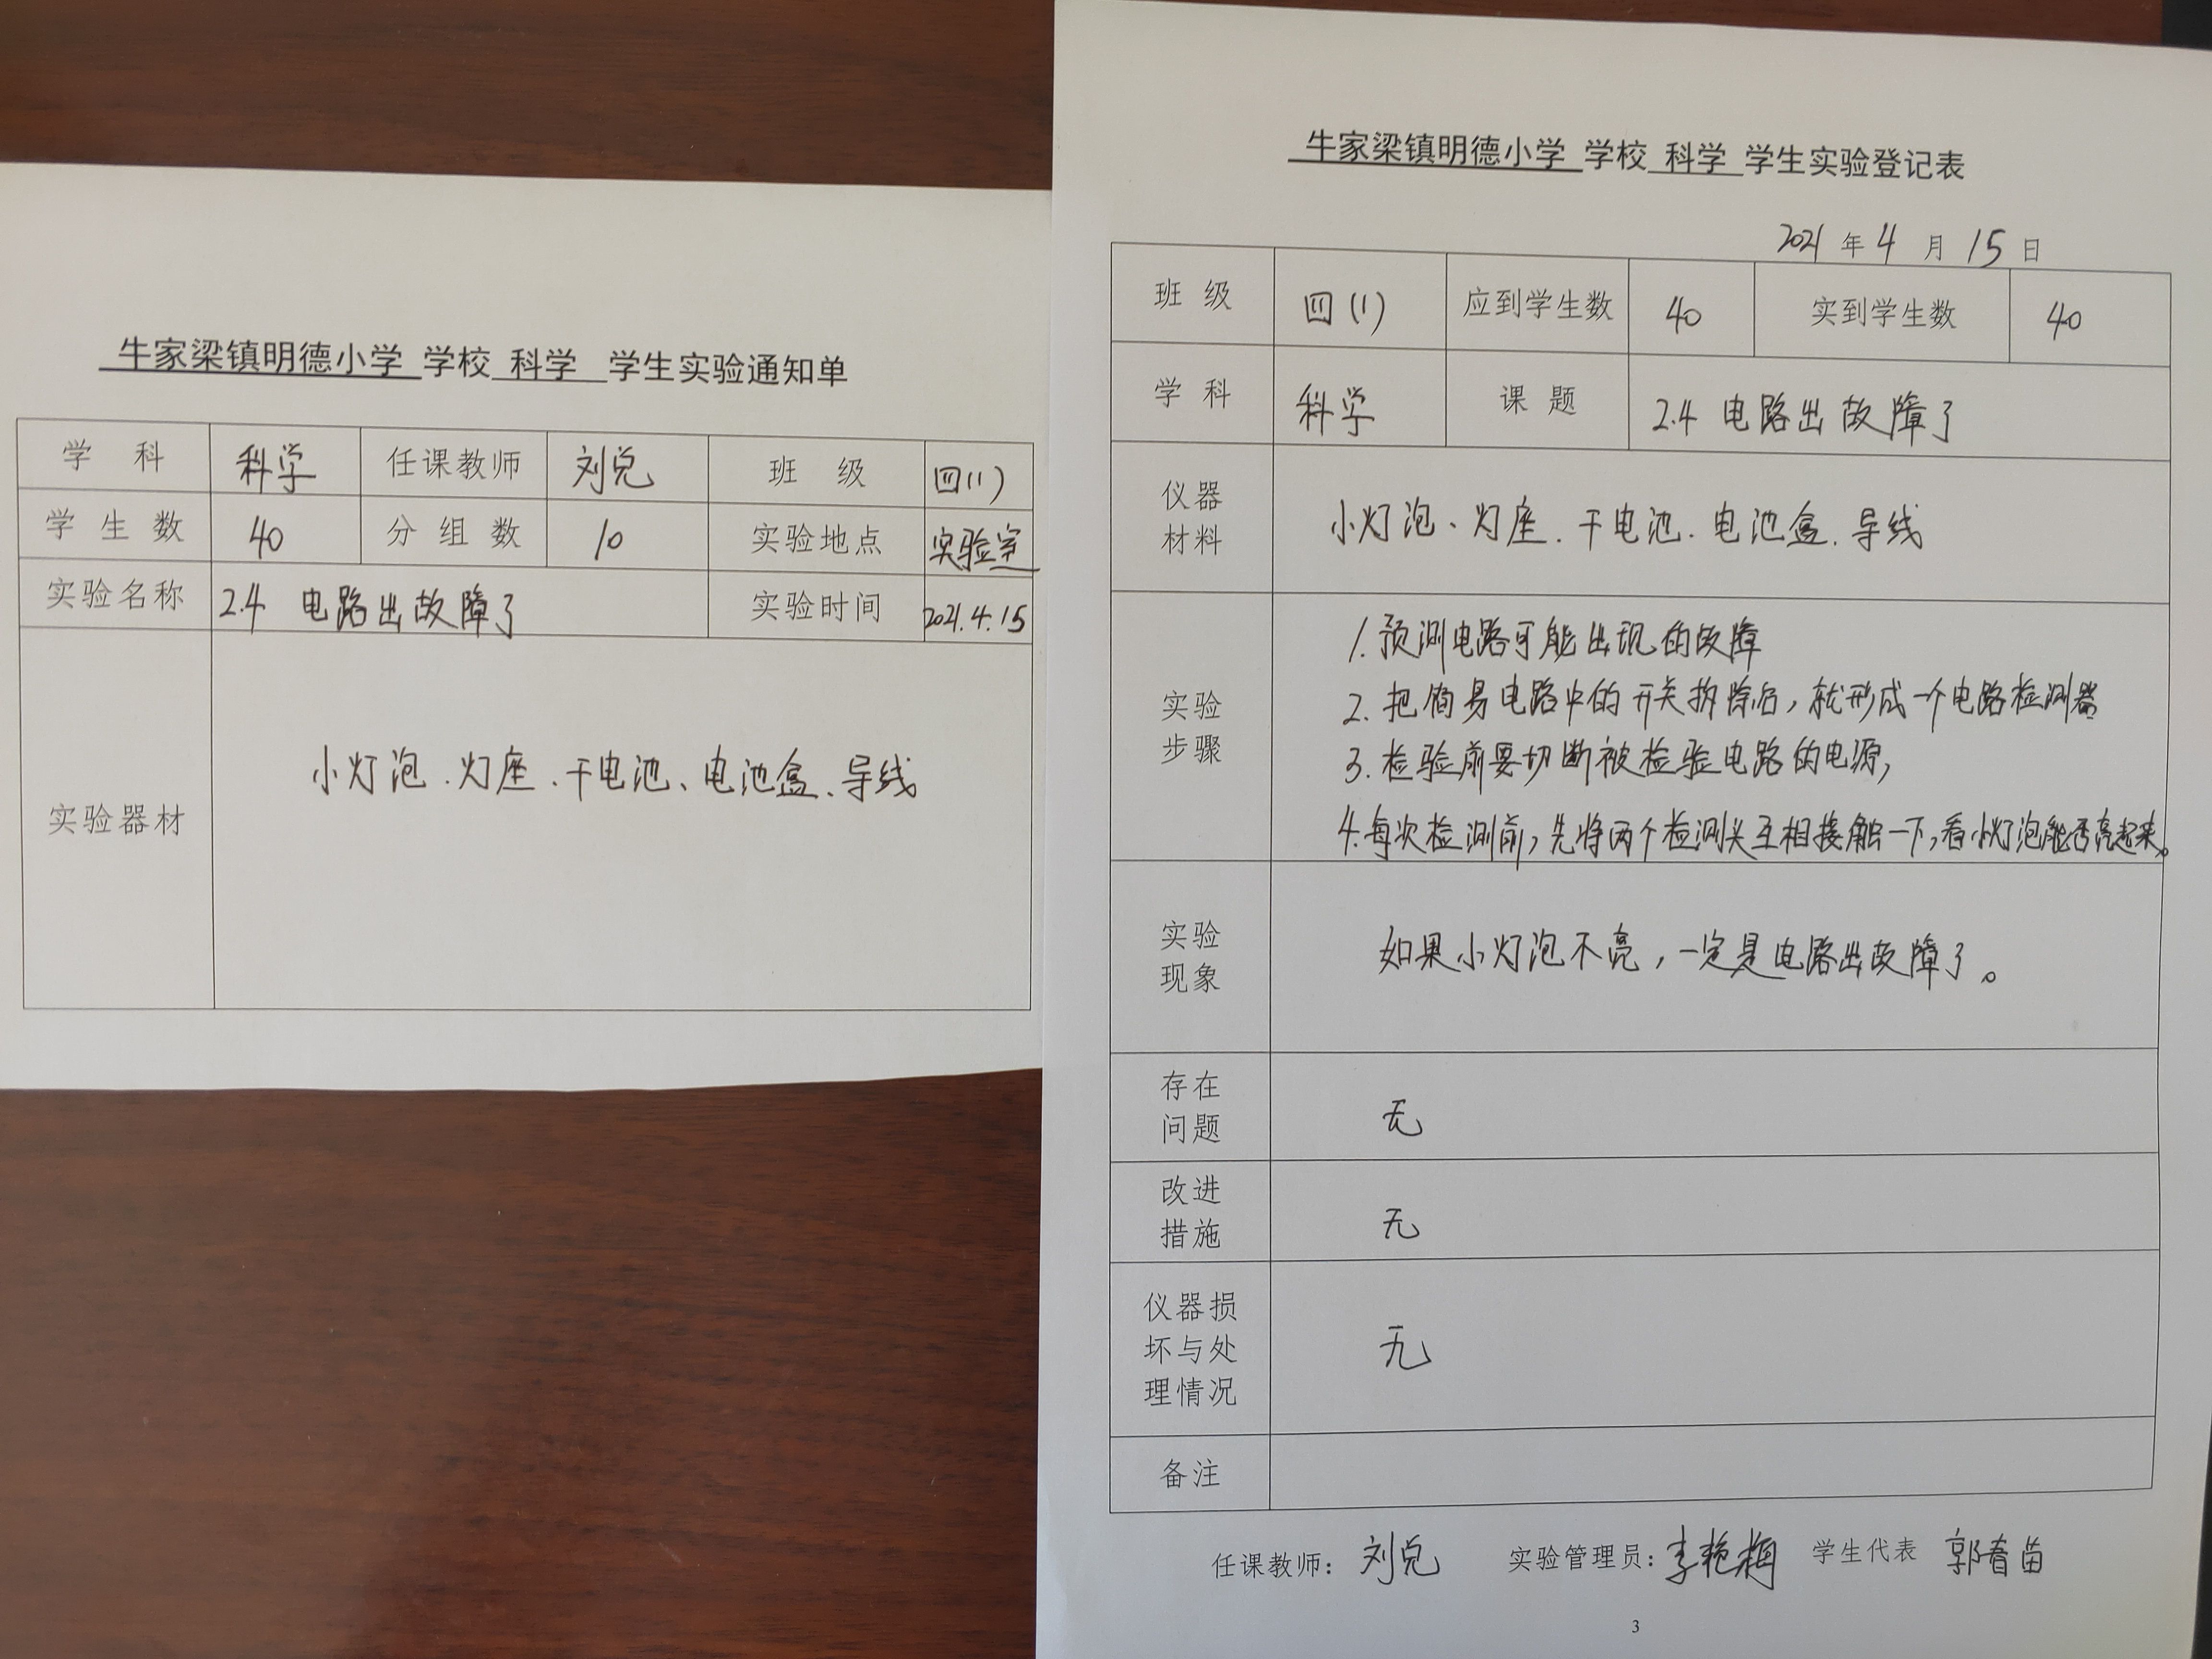 牛家梁镇明德小学 学校 科学 学生实验通知单
学 科 科学 任课教师 刘兑 班 级 四(1)
学 生 数 40 分 组 数 10 实验地点 实验室
实验名称 2.4 电路出故障了 实验时间 2021.4.15
实验器材 小灯泡、灯座、干电池、电池盒、导线
牛家梁镇明德小学 学校 科学 学生实验登记表
2021 年 4 月 15 日
班 级 四(1) 应到学生数 40 实到学生数 40
学 科 科学 课 题 2.4 电路出故障了
仪器
材料
小灯泡、灯座、干电池、电池盒、导线
实验
步骤
1.预测电路可能出现的故障
2.把简易电路中的开关拆除后,就形成一个电路检测器
3.检验前要切断被检验电路的电源,
4.每次检测前,先将两个检测头互相接触一下,看小灯泡能否亮起来。
实验
现象
如果小灯泡不亮,一定是电路出故障了。
存在
问题
无
改进
措施
无
仪器损
坏与处
理情况
无
备注
任课教师: 刘兑 实验管理员:李艳梅 学生代表 郭春苗
3